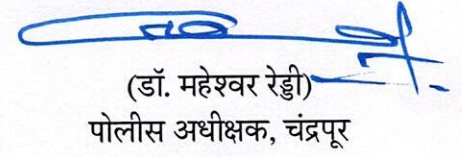 (डॉ. महेश्वर रेड्डी)
पोलीस अधीक्षक, चंद्रपूर